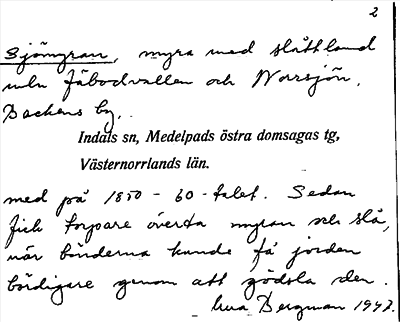 2
Sjömyran, myra med slåttland
mln Fäbodvallen och Norrsjön,
Backens by.
Indals sn, Medelpads östra domsagas tg,
Västernorrlands län.
med på 1850-60-talet. Sedan
fick torpare överta myran och slå,
när bönderna kunde få jorden
bördigare genom att gödsla den.
Bergman 1947.